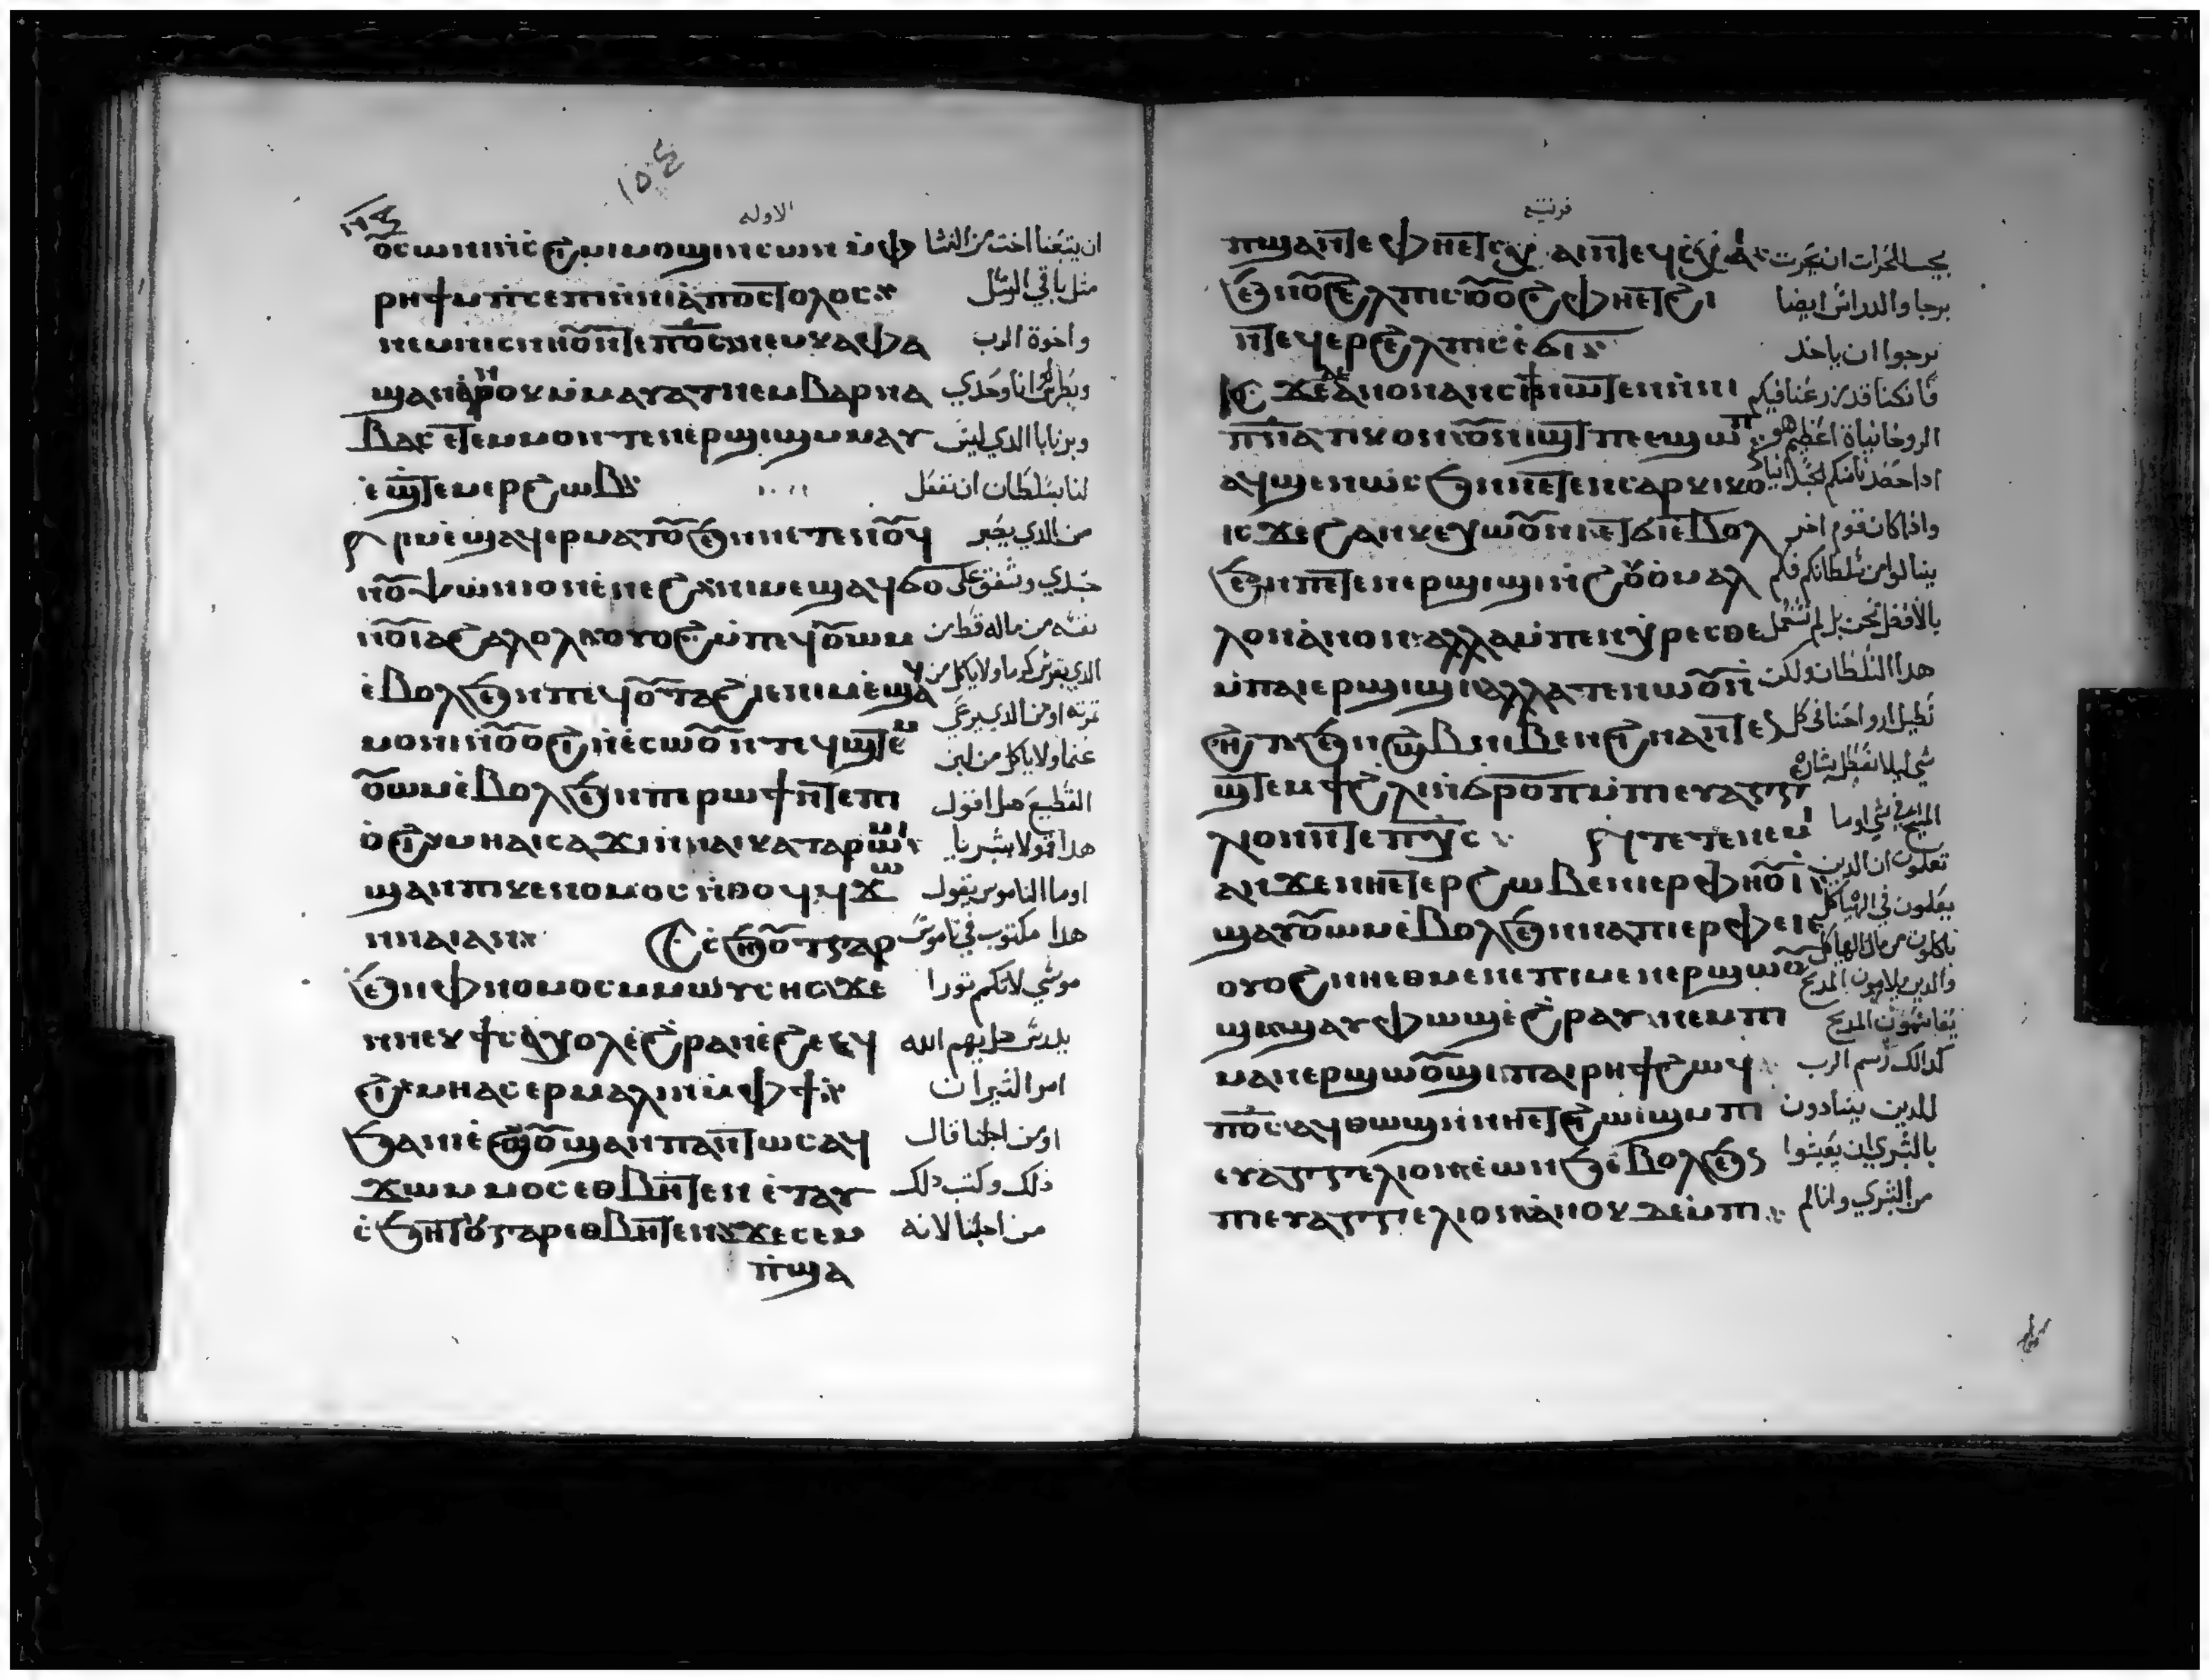 ١٥٤
الاوله
ⲟ̅ⲥ ⲱⲛⲓ ⲛ̀ⲥϩⲓⲙⲓ ⲙⲟϣⲓ ⲛⲥⲱⲛ ⲙ̀ⲫ ان يتبعنا اخت من النسا
ⲣⲏϯ ⲙⲡⲥⲉⲡⲓ ⲛⲛⲓⲁ̀ⲡⲟⲥⲧⲟⲗⲟⲥ مثل باقي الرسل
ⲛⲉⲙ ⲛⲓⲥⲛⲏⲟ̅ ⲛⲧⲉ ⲡⲟ̅ⲥ ⲛⲉⲙ ⲕⲁⲫⲁ واخوة الرب
ϣⲁⲛ ⲁ̀ⲛⲟⲕ ⲙ̀ⲙⲁⲩⲁⲧ ⲛⲉⲙ ⲃⲁⲣⲛⲁ وبطرس انا وحدي
ⲃⲁⲥ ⲉⲧⲉ ⲙⲙⲟⲛⲧⲉⲛ ⲉⲣϣⲓϣⲓ ⲙⲙⲁⲩ وبرنابا الدي ليس
ⲉ̀ϣⲧⲉⲙⲉⲣϩⲱⲃ لنا سلطان ان نفعل
ⲛⲓⲙ ⲉ̀ϣⲁϥⲉⲣⲙⲁⲧⲟ̅ ϧⲉⲛ ⲛⲉⲧⲉⲛⲟ̅ϥ من الدي يجبر
ⲛⲟ̅ⲯⲱⲛⲓⲟⲛ ⲉ̀ⲛⲉϩ ⲛⲓⲙ ⲉϣⲁϥϭⲟ جندي وينفق على
ⲛⲟ̅ⲓⲁϩⲁⲗⲟⲗⲓ ⲟⲩⲟϩ ⲙ̀ⲡⲉϥⲟ̅ⲱⲙ نفسه من ماله قط من
ⲉ̀ⲃⲟⲗϧⲉⲛ ⲡⲉϥⲟ̅ⲧⲁϩ ⲓⲉ ⲛⲓⲙ ⲉ̀ϣⲁϥ الدي يغرس كرما ولا ياكل من
ⲙⲟⲛⲓ ⲛⲟ̅ⲟϩⲓ ⲛ̀ⲉⲥⲱⲟ̅ ⲛⲧⲉϥϣⲧⲉⲙ ثمرته او من الدي يرعى
ⲟ̅ⲱⲙ ⲉ̀ⲃⲟⲗϧⲉⲛ ⲡⲉⲣⲱϯ ⲛⲧⲉ ⲡⲓ غنما ولا ياكل من لبن
ⲟ̀ϩⲓ ⲙⲏ ⲁⲓⲥⲁϫⲓ ⲛ̀ⲛⲁⲓ ⲕⲁⲧⲁ ⲣⲱⲙⲓ القطيع هل اقول
ϣⲁⲛ ⲡⲓⲕⲉⲛⲟⲙⲟⲥ ⲛ̀ⲑⲟϥ ϥϫⲱ هدا قولا بشريا
ⲛⲛⲁⲓ ⲁⲛ ⲥ̀ⲥϧⲏⲟ̅ⲧ ⲅⲁⲣ اوما الناموس يقول
ϧⲉⲛ ⲫⲛⲟⲙⲟⲥ ⲙⲙⲱⲩⲥⲏⲥ ϫⲉ هدا مكتوب في ناموس
ⲛⲛⲉⲕϯⲥⲁϫⲟⲗ ⲉ̀ϩⲣⲁⲛ ⲉ̀ϩⲉ موسي لاتكم تورا
ⲙⲏ ⲁⲥⲉⲣⲙⲉⲗⲓⲛ ⲙ̀ⲫϯ يدرس هل يهم الله
ϣⲁⲛ ⲉⲑⲃⲏⲧⲉⲛ ⲡⲁⲛⲧⲱⲥ ⲁϥ امر الثيران
ϫⲱ ⲙⲙⲟⲥ ⲉⲑⲃⲏⲧⲉⲛ ⲉ̀ⲧⲁⲩ او من اجلنا قال
ⲥ̀ϧⲏⲧⲟ̅ ⲅⲁⲣ ⲉⲑⲃⲏⲧⲉⲛ ϫⲉ ⲥⲉⲙ ذلك وكتب دلك
ⲡϣⲁ من اجلنا لانه
قرنتيه
ⲡϣⲁ ⲛⲧⲉ ⲫⲏⲉⲧⲥⲭⲁⲓ ⲛⲧⲉϥⲥⲭⲁⲓ يجب الحرات ان يحرت
ϧⲉⲛ ⲟ̅ϩⲉⲗⲡⲓⲥ ⲟ̅ⲟϩ ⲫⲏⲉⲧϩⲓ برجا والدراس ايضا
ⲛⲧⲉϥⲉⲣϩⲉⲗⲡⲓⲥ ⲉ̀ϭⲓ يرجوا ان ياخد
ⲓⲥϫⲉ ⲁⲛⲟⲛ ⲁⲛⲥⲓϯ ⲛⲱⲧⲉⲛ ⲛ̀ⲛⲓ فان كنا قد زرعنا فيكم
ⲡⲛ̅ⲁ̅ⲧⲓⲕⲟⲛ ⲟ̅ⲛⲓϣϯ ⲡⲉ ⲉϣⲱⲡ الروحانياة اعظيم هو
ⲁϥϣⲉⲛ ⲱⲥϧ ⲛⲛⲉⲧⲉⲛⲥⲁⲣⲕⲓⲕⲟⲛ ادا حصدنا منكم الجسدانيات
ⲓⲥϫⲉ ϩⲁⲛⲕⲉⲭⲱⲟ̅ⲛⲓ ⲉⲧϭⲓ ⲉ̀ⲃⲟⲗ واذا كان قوم اخر
ϧⲉⲛ ⲡⲉⲧⲉⲛⲉⲣϣⲓϣⲓ ⲛ̀ϩⲟ̅ⲟ̀ ⲙⲁⲗ ينالوا من سلطانكم فكم
ⲗⲟⲛ ⲁ̀ⲛⲟⲛ ⲁⲗⲗⲁ ⲙ̀ⲡⲉⲛⲭⲣⲉⲥⲑⲉ بالافضل نحن بل لم نستعمل
ⲙ̀ⲡⲁⲓⲉⲣϣⲓϣⲓ ⲁⲗⲗⲁ ⲧⲉⲛⲱⲟ̅ⲛ̀ هدا السلطان ولكن
ϩⲏⲧ ϧⲉⲛ ϩⲱⲃ ⲛⲓⲃⲉⲛ ϩⲓⲛⲁ ⲛⲧⲉⲛ نطيل ارواحنا في كل
ϣⲧⲉⲙϯ ϩⲗⲓ ⲛ̀ϭⲣⲟⲡ ⲙ̀ⲡⲓⲉⲩⲁⲅⲅⲉ شي ليلا نعطل بشارة
ⲗⲓⲟⲛ ⲛⲧⲉ ⲡⲭ̅ⲥ ⲧⲉⲧⲉⲛⲉⲙⲓ المسيح في شي اوما
ⲁⲛ ϫⲉ ⲛⲏⲉⲧⲉⲣϩⲱⲃ ⲉⲛⲓⲉⲣⲫⲏⲟ̅ⲓ تعلمون ان الدين
ϣⲁⲩⲟ̅ⲱⲙ ⲉ̀ⲃⲟⲗϧⲉⲛ ⲛⲁ ⲡⲓⲉⲣⲫⲉⲓ يعملون في الهياكل
ⲟⲩⲟϩ ⲛⲏⲉⲑⲙⲏⲛ ⲉ̀ⲡⲓⲙⲁⲛⲉⲣϣⲱⲟ̅ ياكلون من مال الهياكل
ϣⲓ ϣⲁⲩⲫⲱϣ ⲉ̀ϩⲣⲁⲩ ⲛⲉⲙ ⲡⲓ والدين يلازمون المدبح
ⲙⲁⲛⲉⲣϣⲱⲟ̅ϣⲓ ⲡⲁⲓⲣⲏϯ ϩⲱϥ يقاسمون المدبح
ⲡⲟ̅ⲥ ⲁϥⲑⲱϣ ⲛ̀ⲛⲏⲉⲧϩⲓⲱⲓϣ ⲙⲡⲓ كدالك رسم الرب
ⲉⲩⲁⲅⲅⲉⲗⲓⲟⲛ ⲉ̀ⲱⲛϧ ⲉ̀ⲃⲟⲗϧⲉⲛ للدين ينادون
ⲡⲓⲉⲩⲁⲅⲅⲉⲗⲓⲟⲛ ⲁ̀ⲛⲟⲕ ⲇⲉ ⲙ̀ⲡⲓ بالبشري ان يعيشوا
من البشري وانا لم